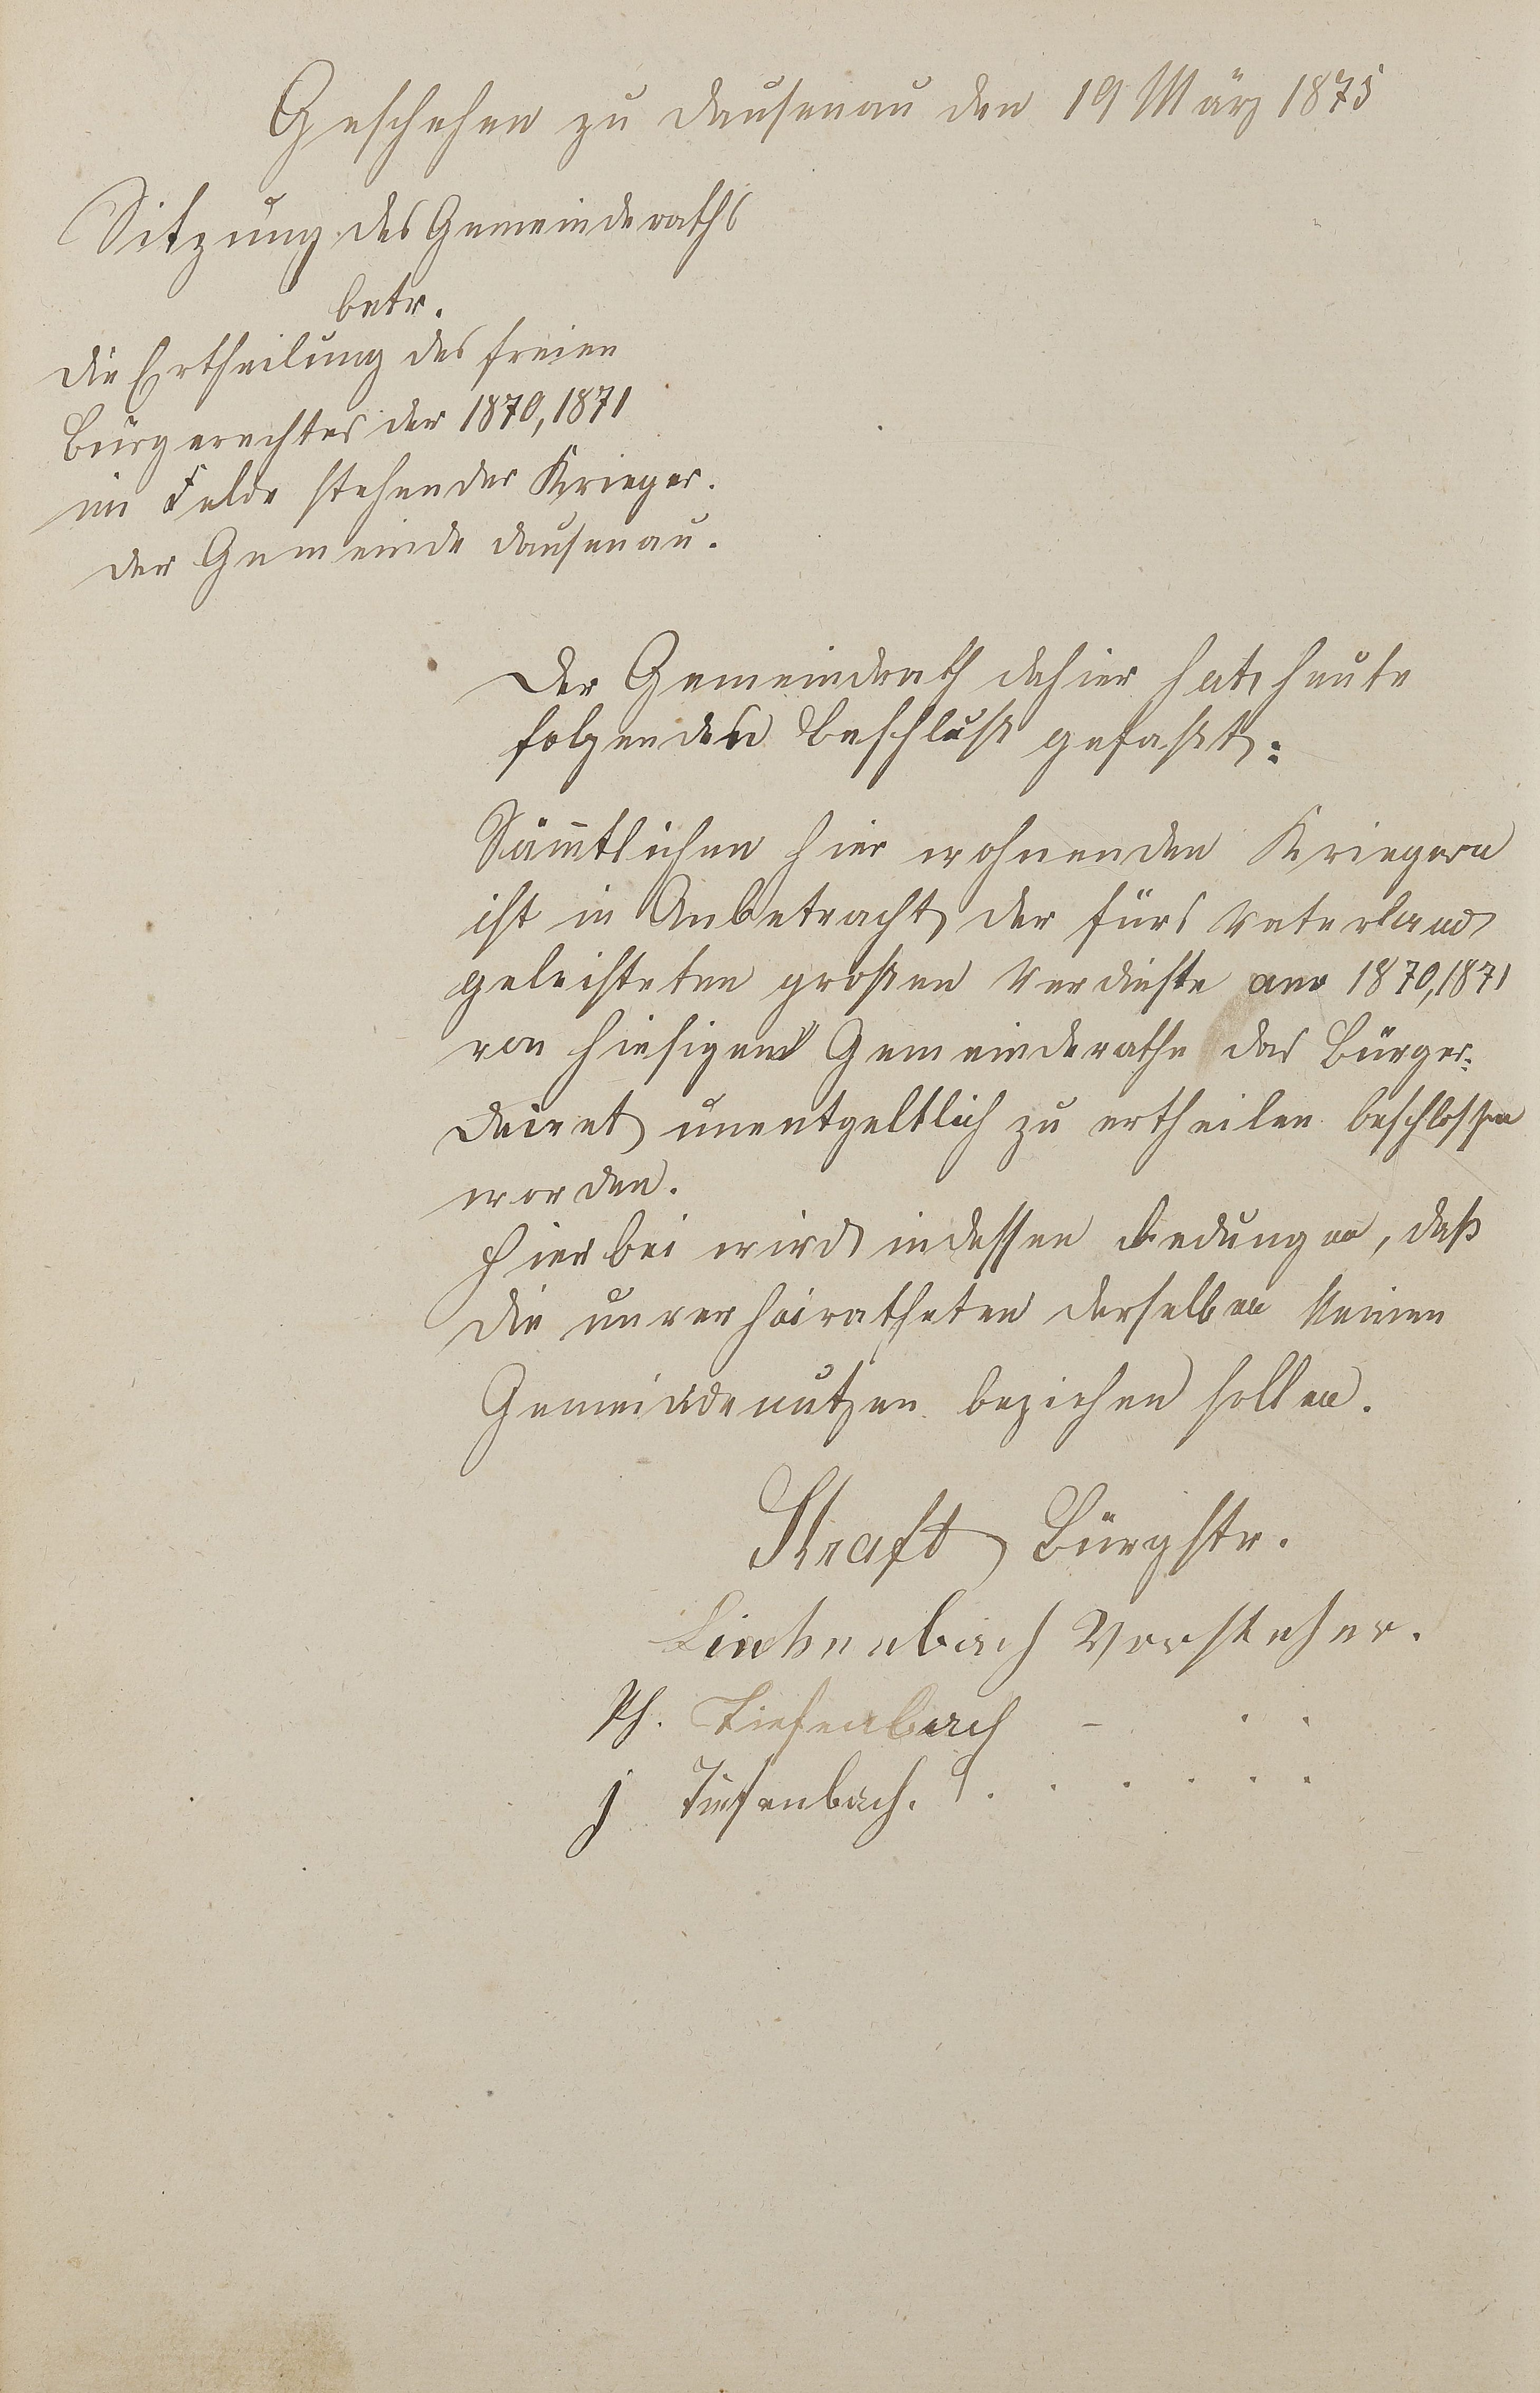 Geschehen zu Dausenau den 19 März 1875
Sitzung des Gemeinderaths
betr.
die Ertheilung des freien
Bürgerechtes der 1870, 1871
im Felde stehender Krieger.
der Gemeinde Dausenau.
Der Gemeindrath dahier hat heute
folgenden Beschluß gefaßt:
Sämtlichen hier wohnenden Kriegern
ist in Anbetracht der fürs Vaterland
geleisteten großen Verdienste pro 1870, 1871
von hiesigem Gemeinderathe das Bürger-
unentgeltlich zu ertheilen beschlossen
worden.
Hierbei wird indessen bedungen, daß
die unverheiratheten derselben keinen
Gemeindenutzen beziehen sollen.
Kraft Bürgstr.
Linkenbach Vorsteher.
Ph. Tiefenbach - . .
J Tiefenbach. . . . . . .